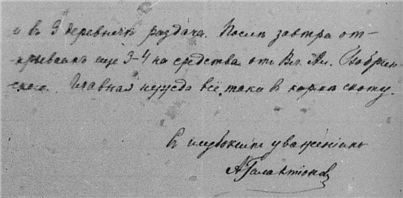 и въ 3 деревняхъ раздача. Послѣ завтра от-
крываемъ еще 3-4 на средства от Вл. Ал. Бобрин-
скаго. Главная нужда всё таки в кормѣ скоту.
Съ глубокимъ уваженіемъ
А Галактіоновъ